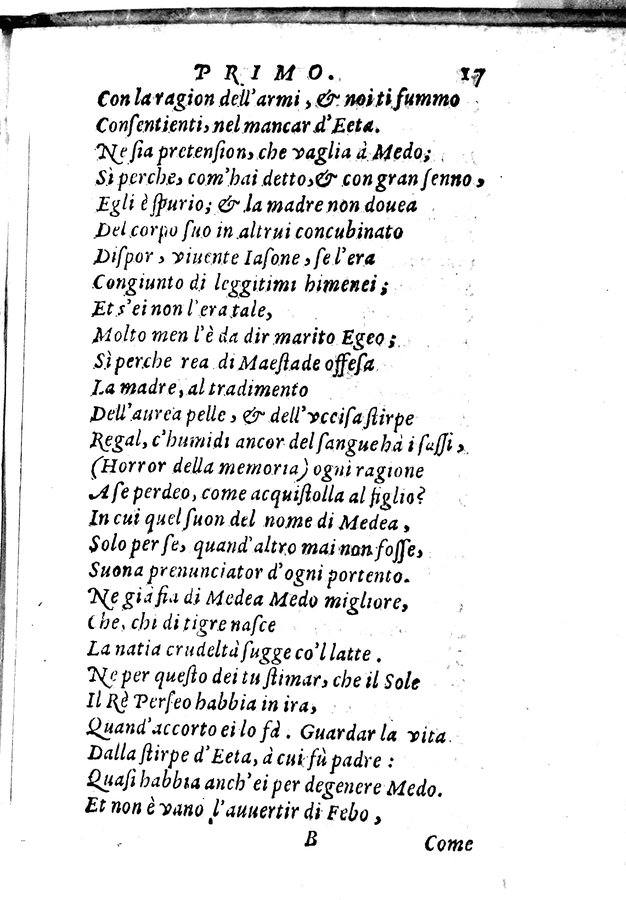 PRIMO. 17
Con la ragion dell'armi, & noi ti fummo
Conſentienti, nel mancar d'Eeta.
Ne ſia pretenſion, che vaglia à Medo;
Sì perche, com'hai detto, & con gran ſenno,
Egli è ſpurio; & la madre non douea
Del corpo ſuo in altrui concubinato
Diſpor, viuente Iaſone, ſe l'era
Congiunto di leggitimi himenei;
Et s'ei non l'era tale,
Molto men l'è da dir marito Egeo;
Sì perche rea di Maeſtade offeſa
La madre, al tradimento
Dell'aurea pelle, & dell'vcciſa ſtirpe
Regal, c'humidi ancor del ſangue hà i ſaſſi,
(Horror della memoria) ogni ragione
A ſe perdeo, come acquiſtolla al figlio?
In cui quel ſuon del nome di Medea,
Solo per ſe, quand'altro mai non foſſe,
Suona prenunciator d'ogni portento.
Ne già fia di Medea Medo migliore,
Che, chi di tigre naſce
La natia crudeltà ſugge co'l latte.
Ne per queſto dei tu ſtimar, che il Sole
Il Rè Perſeo habbia in ira,
Quand'accorto ei lo fà. Guardar la vita
Dalla ſtirpe d'Eeta, à cui fù padre:
Quaſi habbia anch'ei per degenere Medo.
Et non è vano l'auuertir di Febo,
B Come